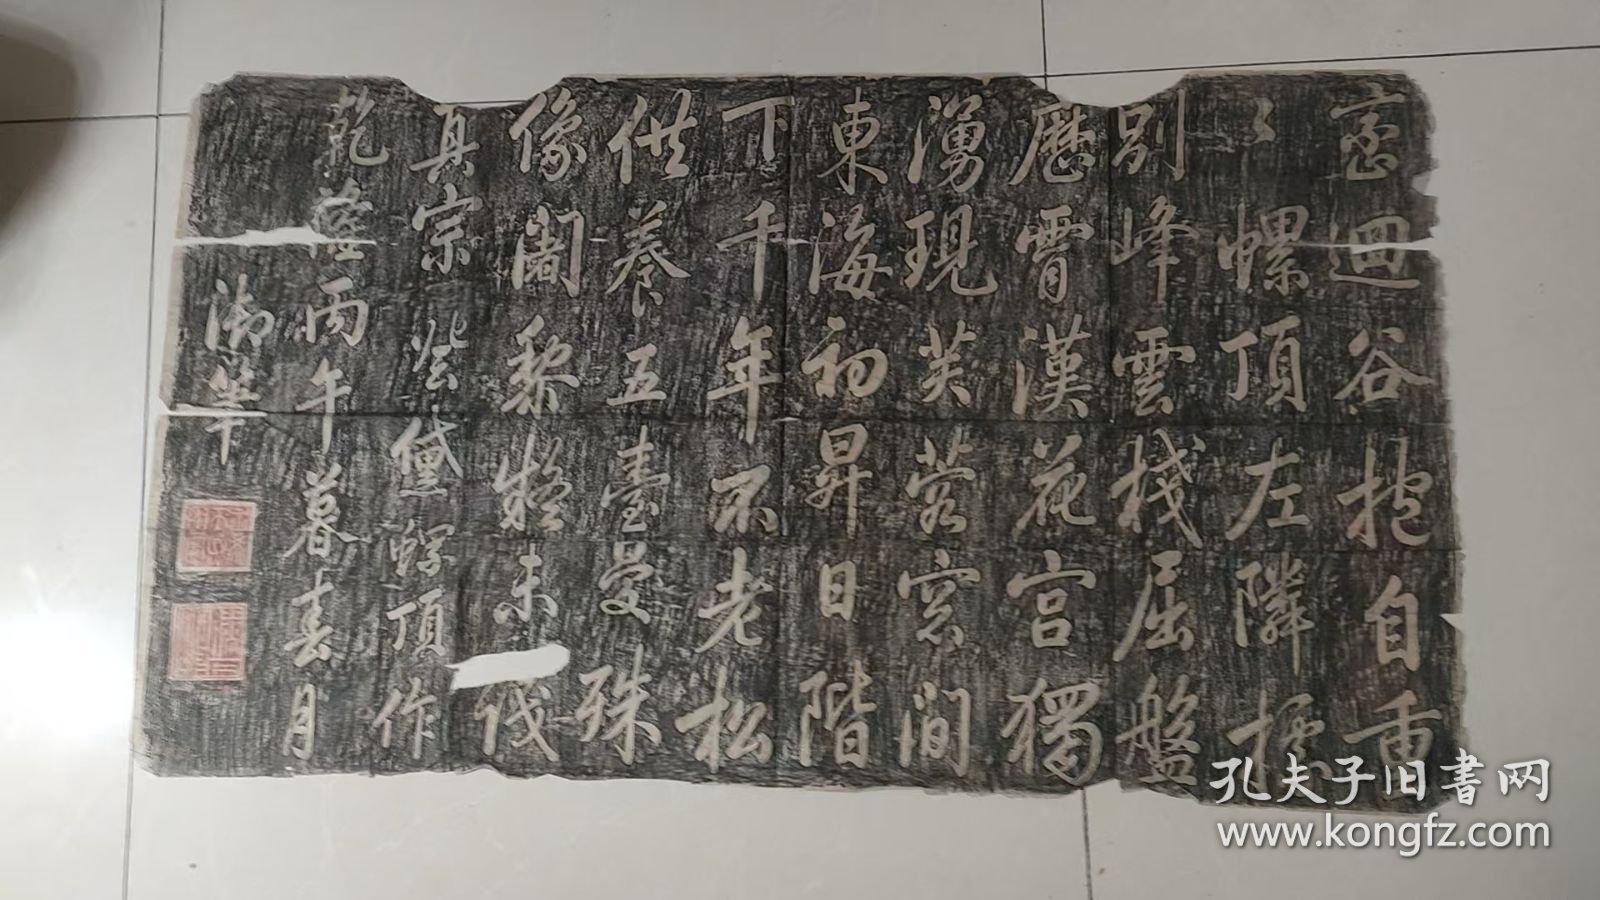 峦迴谷抱自重
〻螺頂左隣標
別峰雲棧屈盤
歷霄漢花宮獨
湧現芙蓉窓間
東海初昇日階
下千年不老松
供養五臺曼殊
像闍黎疑未識
真宗 登黛螺頂作
乾隆丙午暮春月
御筆
孔夫子旧書网
www.kongfz.com